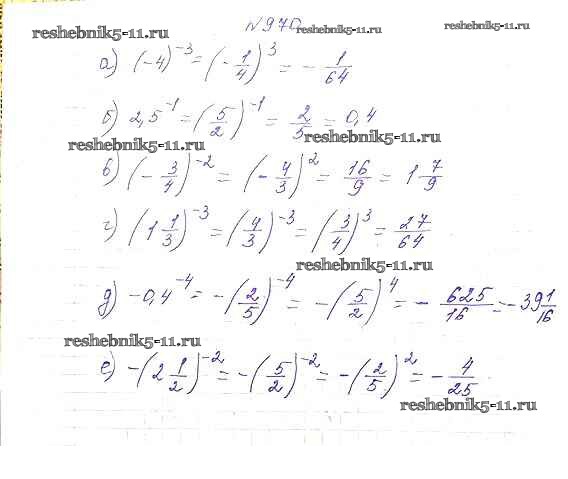 №970
reshebnik5-11.ru reshebnik5-11.ru reshebnik5-11.ru
а) (-4)^-3 = (-1/4)^3 = -1/64
б) 2,5^-1 = (5/2)^-1 = 2/5 = 0,4
reshebnik5-11.ru reshebnik5-11.ru
в) (-3/4)^-2 = (-4/3)^2 = 16/9 = 1 7/9
г) (1 1/3)^-3 = (4/3)^-3 = (3/4)^3 = 27/64
reshebnik5-11.ru
д) -0,4^-4 = -(2/5)^-4 = -(5/2)^4 = -625/16 = -39 1/16
reshebnik5-11.ru
е) -(2 1/2)^-2 = -(5/2)^-2 = -(2/5)^2 = -4/25
reshebnik5-11.ru